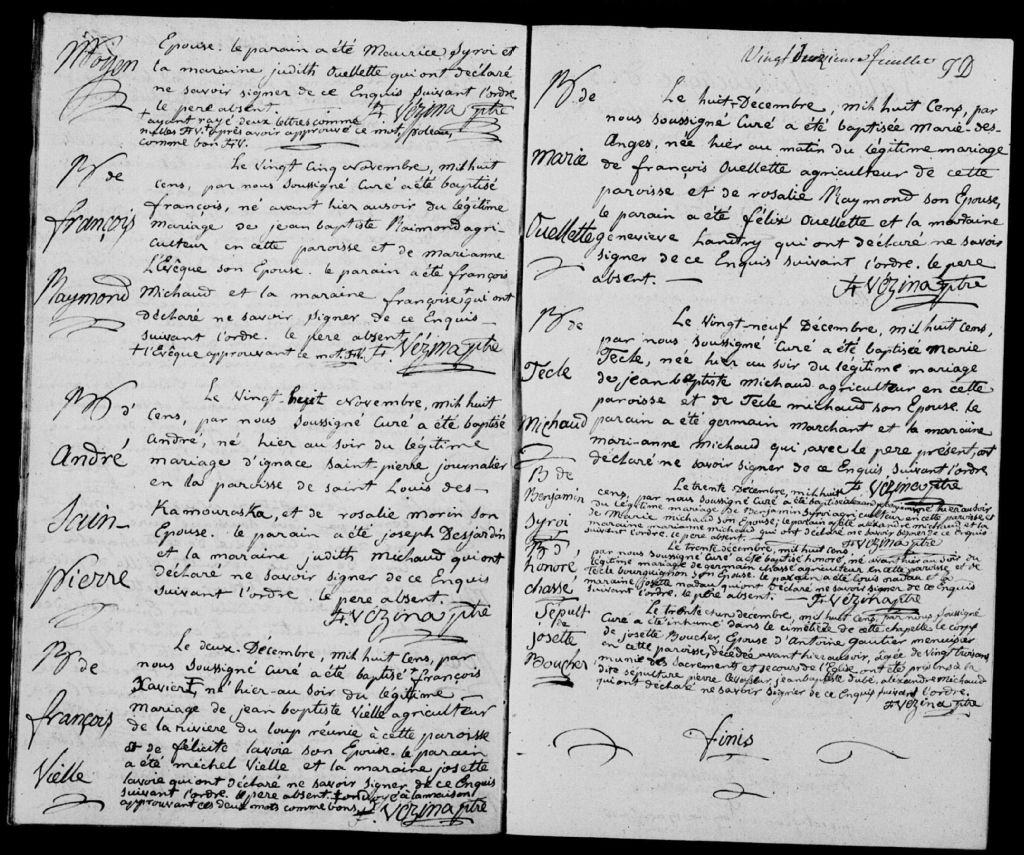 Epouse. le parain a été Maurice Syroi et
la maraine judith Ouellette qui ont déclaré
ne savoir signer de ce Enquis suivant l'ordre.
le pere absent. F. Vézina Ptre
+ ayant rayé deux lettres comme
nulles F.V. + après avoir approuvé ce mot,
comme bon. F.V.
B de
françois
Raymond
Le Vingt Cinq Novembre, mil huit
cens, par nous soussigné Curé a été baptisé
françois, né avant hier au soir du légitime
mariage de jean baptiste Raimond agri-
culteur en cette paroisse et de marianne
L'Evêque son Epouse. le parain a été françois
Michaud et la maraine françoise + qui ont
déclaré ne savoir signer de ce Enquis
suivant l'ordre. le pere absent.
+ l'Evêque approuvant ce mot. F.V. F. Vézina Ptre
B d'
André
Sain-
Pierre
Le Vingt-huit Novembre, mil huit
cens, par nous soussigné Curé a été baptisé
André, né hier au soir du légitime
mariage d'ignace saint pierre journalier
en la paroisse de saint Louis des-
Kamouraska, et de rosalie morin son
Epouse. le parain a été joseph Desjardin
et la maraine judith Michaud qui ont
déclaré ne savoir signer de ce Enquis
suivant l'ordre. le pere absent.
F. Vézina Ptre
B de
françois
Vielle
Le deux Décembre, mil huit cens, par
nous soussigné Curé a été baptisé françois
Xavier, né hier au soir du légitime
mariage de jean baptiste Vielle agriculteur
de la riviere du loup réunie à cette paroisse
et de félicité lavoie son Epouse. le parain
a été michel Vielle et la maraine josette
lavoie qui ont déclaré ne savoir signer de ce Enquis
suivant l'ordre. le pere absent. + ondoyé à la maison
approuvant ces deux mots comme bons. F. Vézina Ptre
Vingt feuille
B de
Marie
Ouellette
Le huit Décembre, mil huit Cens, par
nous soussigné Curé a été baptisée Marie-des-
Anges, née hier au matin du légitime mariage
de françois Ouellette agriculteur de cette
paroisse et de rosalie Raymond son Epouse,
le parain a été félix Ouellette et la maraine
genevieve Landry qui ont déclaré ne savoir
signer de ce Enquis suivant l'ordre. le pere
absent.
F. Vézina Ptre
B de
Tecle
Michaud
Le Vingt-neuf Décembre, mil huit Cens,
par nous soussigné Curé a été baptisée Marie
Tecle, née hier au soir du légitime mariage
de jean baptiste Michaud agriculteur en cette
paroisse et de Tecle michaud son Epouse. le
parain a été germain Marchant et la maraine
mari-anne Michaud qui, avec le pere présent, ont
déclaré ne savoir signer de ce Enquis suivant l'ordre
F. Vézina Ptre
B de
Benjamin
Syroi
Le trente Décembre, mil huit
cens, par nous soussigné Curé a été baptisé né hier au soir
du légitime mariage de Benjamin Syroi agriculteur en cette paroisse et
de Marie Michaud son Epouse; le parain a été alexandre michaud et la
maraine marianne michaud qui ont déclaré ne savoir signer de ce Enquis
suivant l'ordre. le pere absent.
F. Vézina Ptre
B d'
honoré
chassé
Le Trente décembre, mil huit cens,
par nous soussigné Curé a été baptisé honoré, né avant hier au soir du
légitime mariage de germain chassé agriculteur en cette paroisse et de
tecle bourguignon son Epouse. le parain a été Louis nadau et la
maraine josette nadau qui ont déclaré ne savoir signer de ce Enquis
suivant l'ordre. le pere absent.
F. Vézina Ptre
Sépult
de
josette
Boucher
Le trente et un décembre, mil huit Cens, par nous soussigné
Curé a été inhumé dans le cimetière de cette chapelle le corps
de josette Boucher, Epouse d'Antoine Gautier menuisier
en cette paroisse, décédée avant hier au soir, agée de Vingt trois ans
munie des Sacrements et secours de l'Eglise. ont été présens à la
dite sépulture pierre levasseur jean baptiste dubé, alexandre michaud
qui ont déclaré ne savoir signer de ce Enquis suivant l'ordre.
F. Vézina Ptre
finis